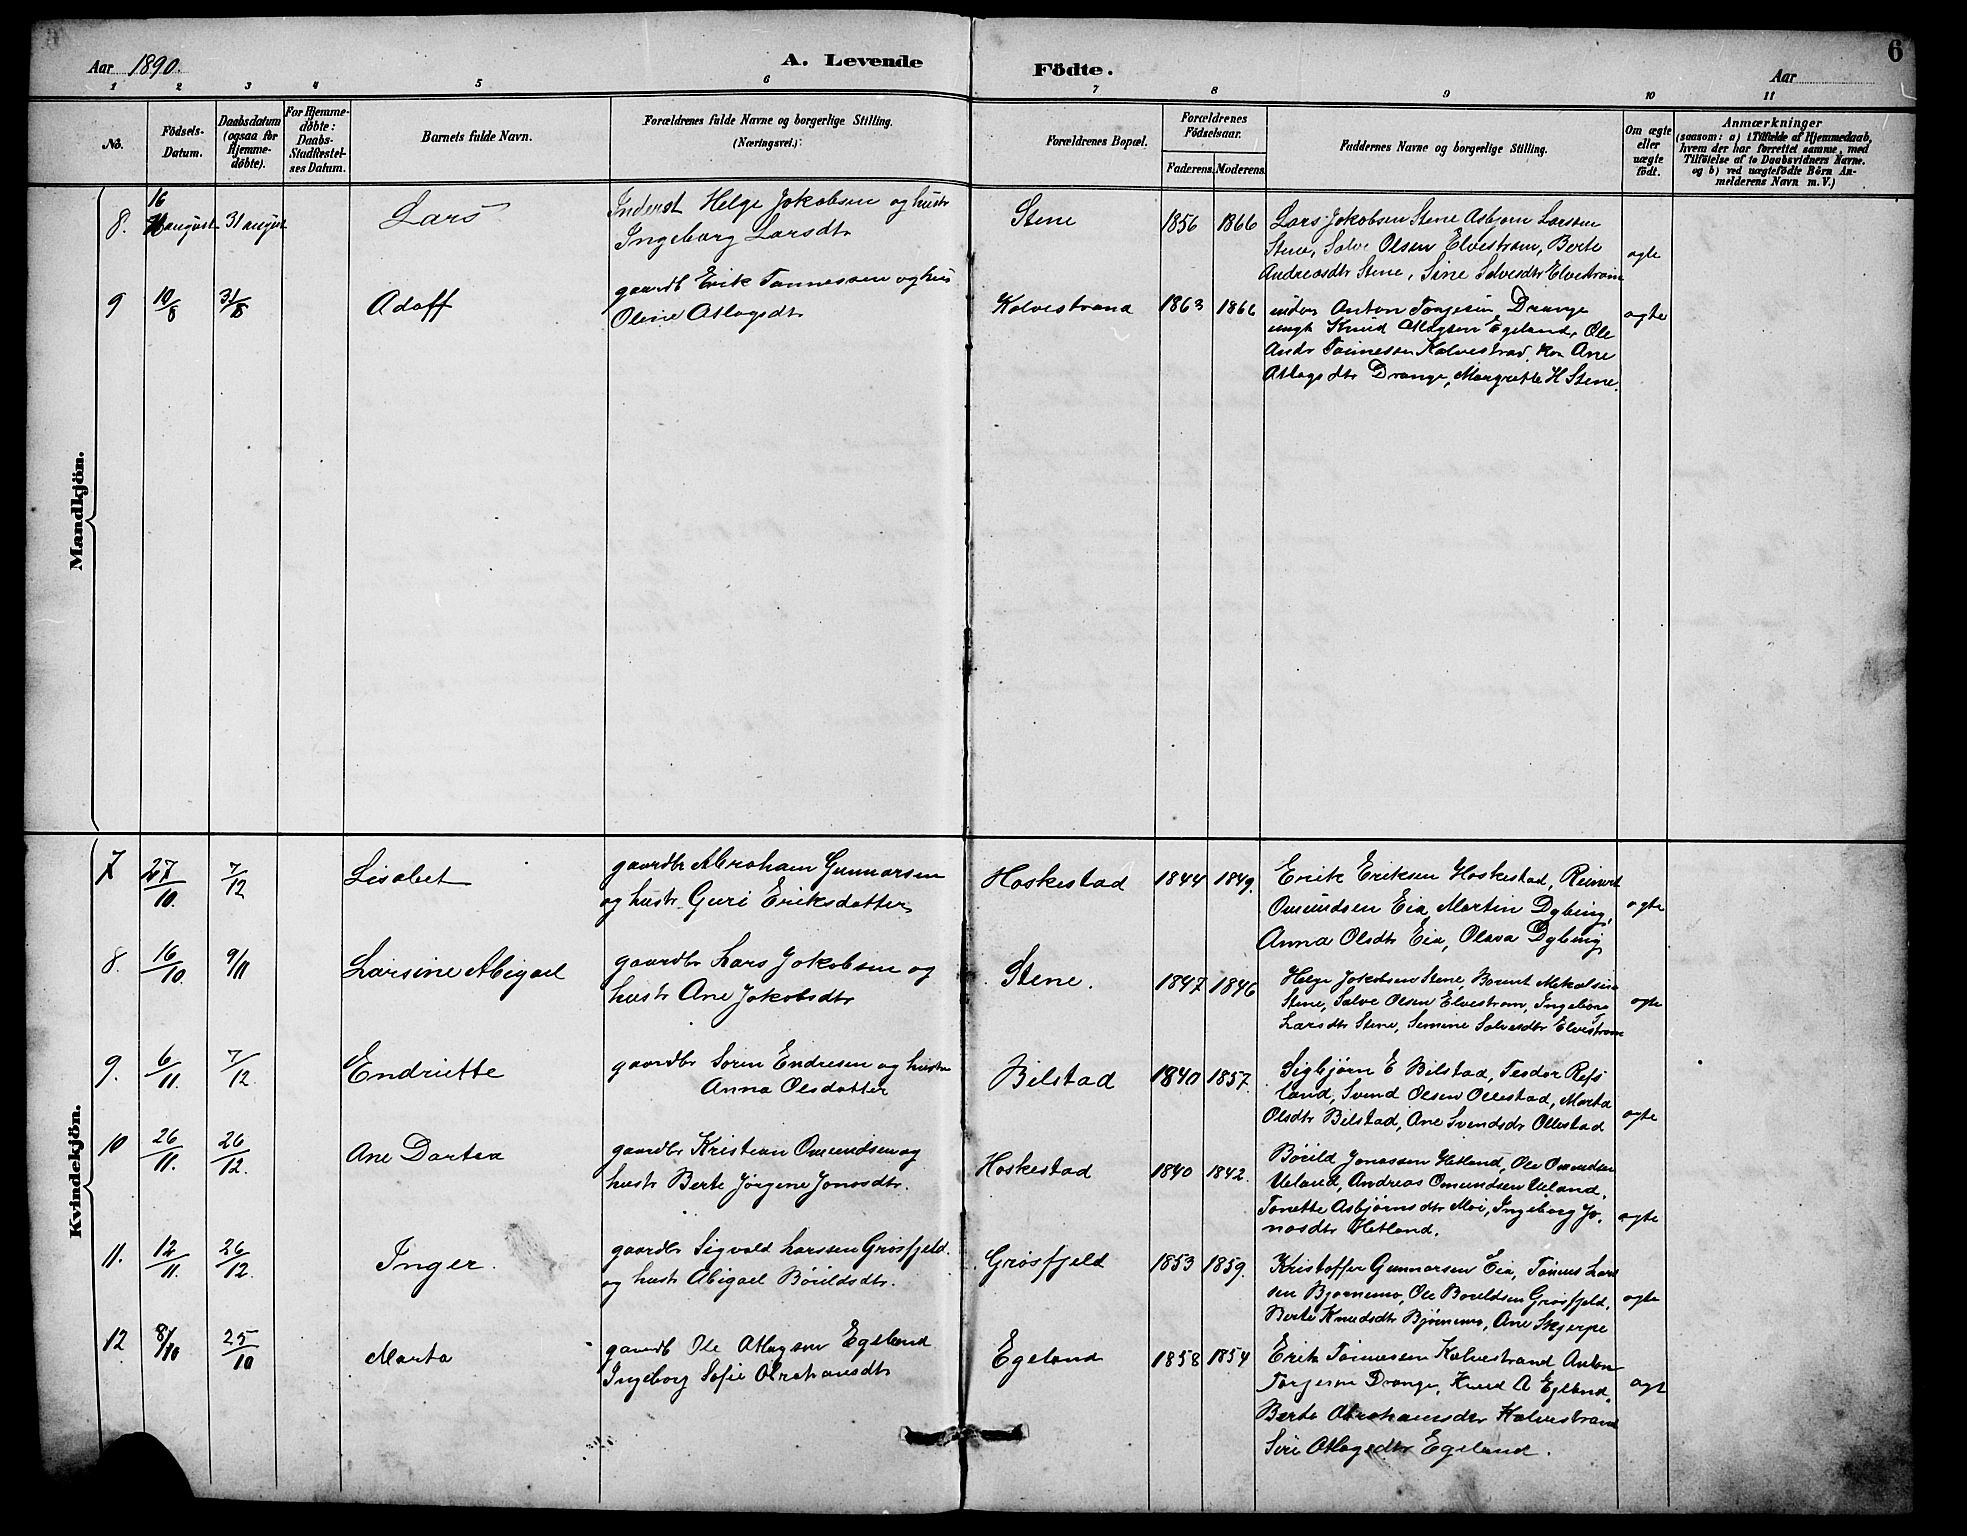 Aar 1890.
A. Levende Födte.
Aar
6
1 2 3 4 5 6 7 8 9 10 11
No.
Födsels-
Datum.
Daabsdatum
(ogsaa for
Hjemme-
döbte).
For Hjemme-
döbte:
Daabs-
Stadfæstel-
ses Datum.
Barnets fulde Navn.
Forældrenes fulde Navne og borgerlige Stilling.
(Næringsvei.)
Forældrenes Bopæl.
Forældrenes
Födselsaar.
Faderens. Moderens.
Faddernes Navne og borgerlige Stilling.
Om ægte
eller
uægte
födt.
Anmærkninger
(saasom: a) i Tilfælde af Hjemmedaab,
hvem der har forrettet samme, med
Tilföielse af to Daabsvidners Navne.
og b) ved uægtefödte Börn An-
melderens Navn m. V.)
Mandkjön.
8. 16 august 31 august
Lars
Inderst Helge Jokobsen og hustr
Ingeborg Larsdtr
Stene
1856 1866
Lars Jokobsen Stene Asbjorn Larsen
Stene, Salve Olsen Elvestrøm, Berte
Andreasdtr Stene, Sine Salvesdtr Elvestrøm
ægte
9 10/8 31/8
Adolf
gaardb Erik Tønnessen og hus
Oline Atlagsdtr
Kolvestrand
1863 1866
Anton Torgesen Drange
ungk Knud Atlagsen Egeland, Ole
Andr Tønnessen Kolvestrad, kon Ane
Atlagsdtr Drange, Margrette H Stene.
ægte
Kvindekjön.
7 27/10. 7/12
Lisabet
gaardbr Abraham Gunnarsen
og hustr Guri Eriksdatter
Hoskestad
1844 1849.
Erik Eriksen Hoskestad, Reinert
Omundsen Eia, Martin Dybing,
Anna Olsdtr Eia, Olava Dybing
ægte
8. 16/10. 9/11
Larsine Abigael
gaardbr Lars Jokobsen og
hustr Ane Jokobsdtr
Stene.
1847 1846
Helge Jokobsen Stene, Berent Mekalsen
Stene, Salve Olsen Elvestrøm, Ingeborg
Larsdtr Stene, Semine Salvesdtr Elvestrøm
ægte
9. 6/11. 7/12.
Endriette
gaardbr Soren Endresen og hustr
Anna Olsdatter
Bilstad
1840 1857.
Sigbjørn E Bilstad, Teodor Refs
land, Svend Olsen Ollestad, Marta
Olsdtr Bilstad, Ane Svendsdr Ollestad
ægte
10 26/11. 26/12.
Ane Dortea
gaardbr Kristian Omundsen og
hustr Berte Jørgene Jonasdtr.
Hoskestad
1840 1842.
Børild Jonassen Hetland, Ole Omundsen
Ueland, Andreas Omundsen Ueland,
Tonette Asbjørnsdtr Moi, Ingeborg Jo-
nasdtr Hetland.
ægte
11. 12/11. 26/12.
Inger.
gaardbr Sigvald Larssen Grøsfjeld.
og hustr Abigael Børildsdtr.
Grøsfjeld
1853 1859.
Kristoffer Gunnarsen Eia, Tønnes Lars
sen Bjørnemo, Ole Børildsen Grøsfjeld,
Berte Knudsdtr Bjørnemo, Ane Skjerpe
ægte
12 8/10 25/10
Marta
gaardb Ole Atlagsen Egeland
Ingeborg Sofie Abrahamsdtr
Egeland
1858 1854
Erik Tønnessen Kolvestrand Anton
Torgesen Drange, Knud A Egeland,
Berte Abrahamsdtr Kolvestrand
Siri Atlagsdtr Egeland.
ægt